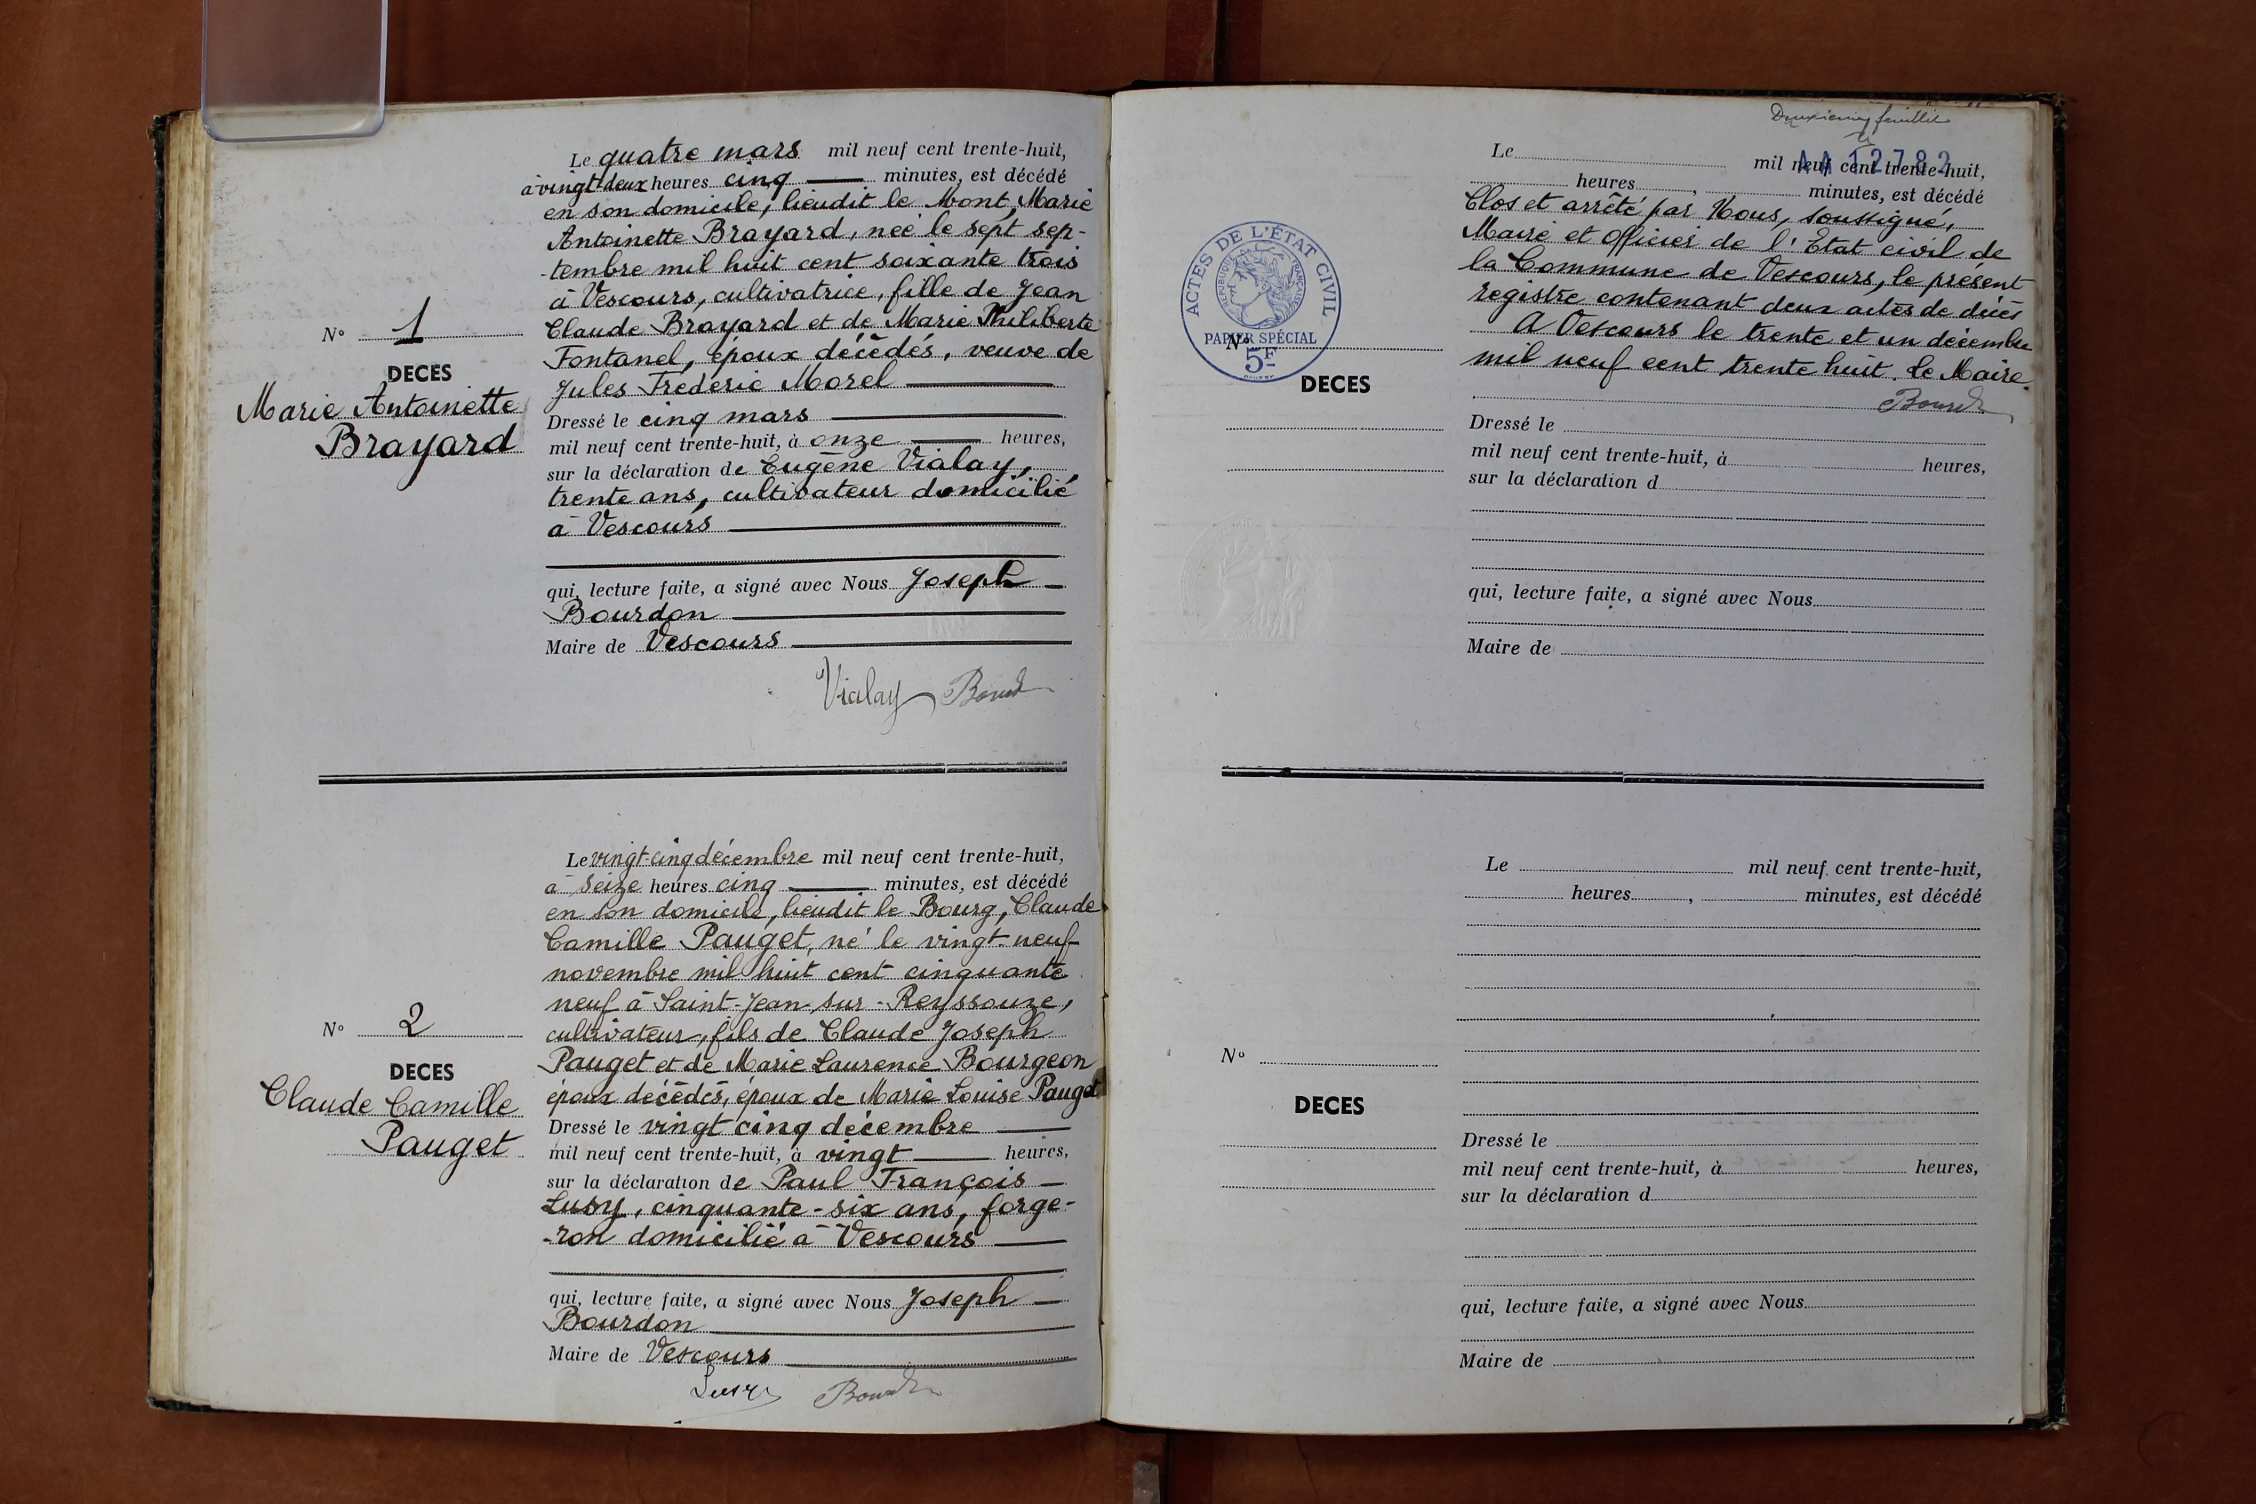 Le quatre mars mil neuf cent trente-huit,
à vingt-deux heures cinq minutes, est décédé
en son domicile, lieudit le Mont, Marie
Antoinette Brayard, née le sept sep-
-tembre mil huit cent soixante trois
à Vescours, cultivatrice, fille de Jean
N° 1
Claude Brayard et de Marie Philiberte
Fontanel, époux décédés, veuve de
DECES
Jules Frédéric Morel
Marie Antoinette
Brayard
Dressé le cinq mars
mil neuf cent trente-huit, à onze heures,
sur la déclaration de Eugène Vialay,
trente ans, cultivateur domicilié
à Vescours
qui, lecture faite, a signé avec Nous Joseph
Bourdon
Maire de Vescours
Vialay Bourd
Le vingt-cinq décembre mil neuf cent trente-huit,
à seize heures cinq minutes, est décédé
en son domicile, lieudit le Bourg, Claude
Camille Pauget, né le vingt-neuf
novembre mil huit cent cinquante
neuf à Saint-Jean-sur-Reyssouze,
N° 2
cultivateur, fils de Claude Joseph
Pauget et de Marie Laurence Bourgeon
DECES
époux décédés, époux de Marie Louise Pauget
Claude Camille
Pauget
Dressé le vingt cinq décembre
mil neuf cent trente-huit, à vingt heures,
sur la déclaration de Paul François
Lusy, cinquante-six ans, forge-
-ron domicilié à Vescours
qui, lecture faite, a signé avec Nous Joseph
Bourdon
Maire de Vescours
Lusy Bourd
Deuxième feuillet
AA 12782
Le mil neuf cent trente-huit,
heures, minutes, est décédé
Clos et arrêté par Nous, soussigné,
Maire et Officier de l'Etat civil de
la Commune de Vescours, le présent
registre contenant deux actes de décès
A Vescours le trente et un décembre
mil neuf cent trente huit. Le Maire.
Bourd
ACTES DE L'ÉTAT CIVIL
RÉPUBLIQUE FRANÇAISE
PAPIER SPÉCIAL
5F
N°
DECES
Dressé le
mil neuf cent trente-huit, à heures,
sur la déclaration d
qui, lecture faite, a signé avec Nous
Maire de
Le mil neuf cent trente-huit,
heures, minutes, est décédé
N°
DECES
Dressé le
mil neuf cent trente-huit, à heures,
sur la déclaration d
qui, lecture faite, a signé avec Nous
Maire de